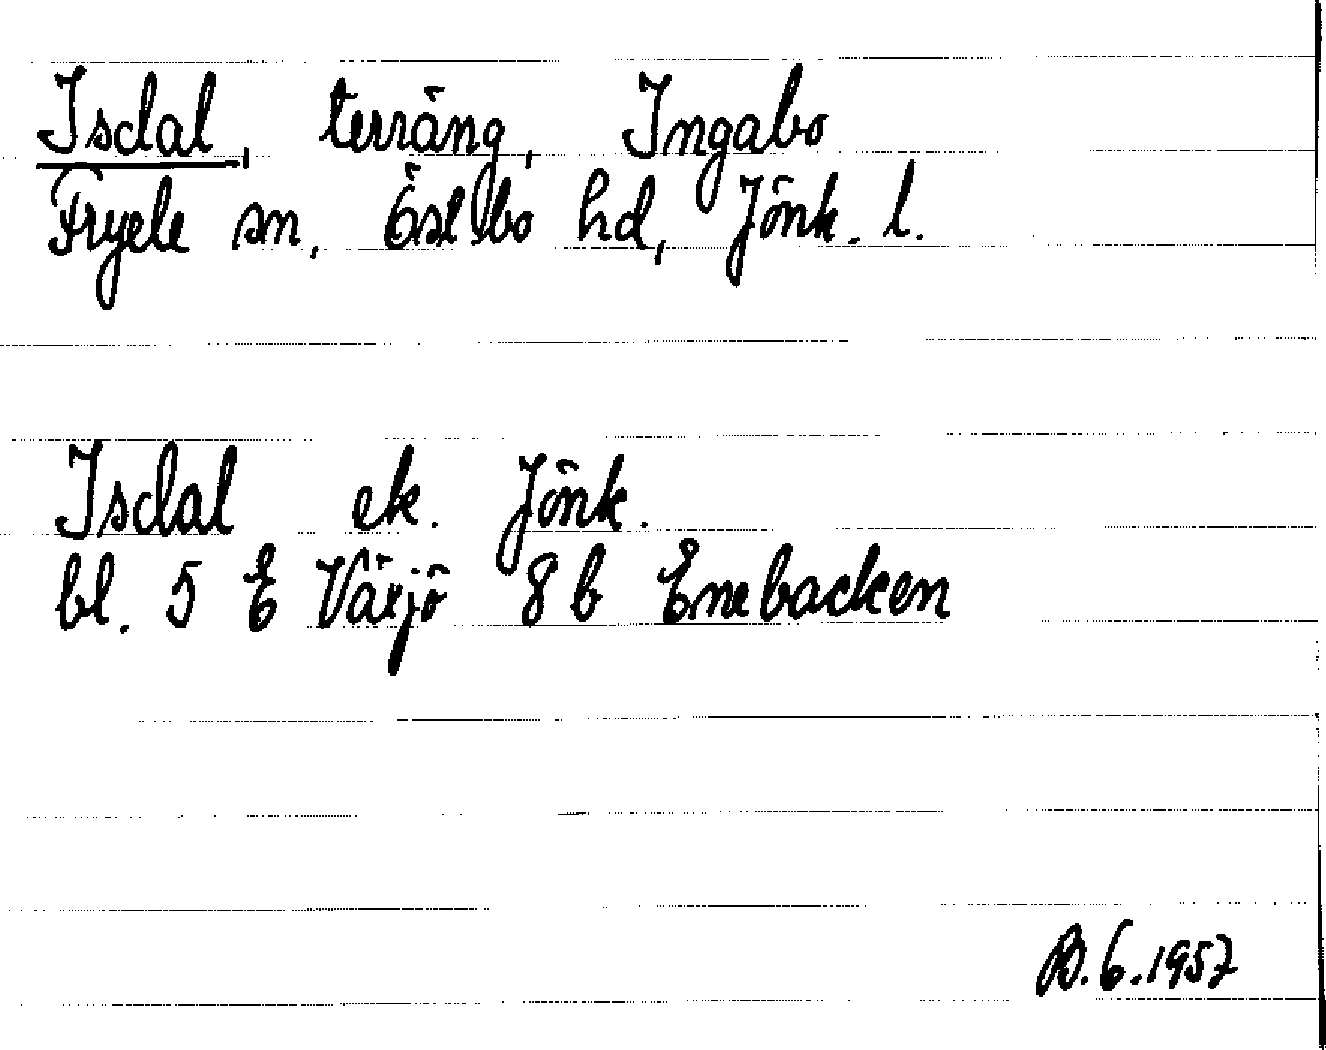 Isdal, terräng, Ingabo
Fryele sn, Östbo hd, Jönk. l.
Isdal ek. Jönk.
bl. 5 E Växjö 8 b Enebacken
B.6.1957